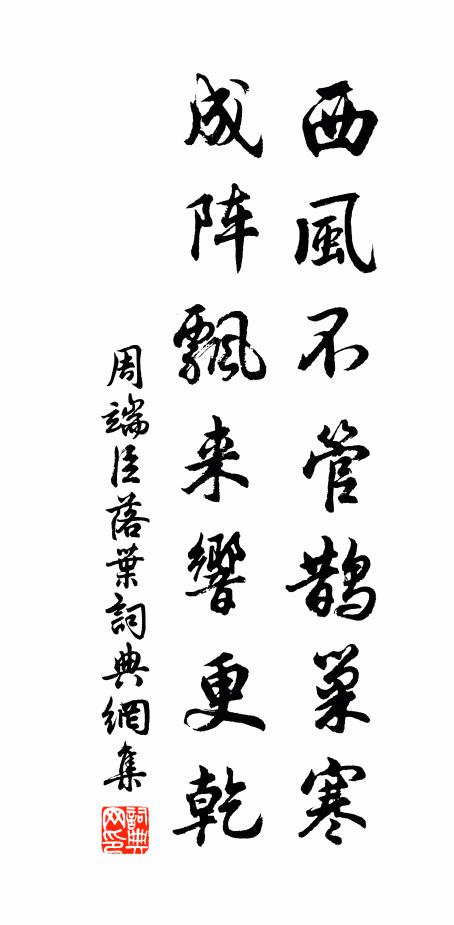 西風不管鵲巢寒
成阵飄来響更乾
周端臣落葉詞典網集
詞典网印